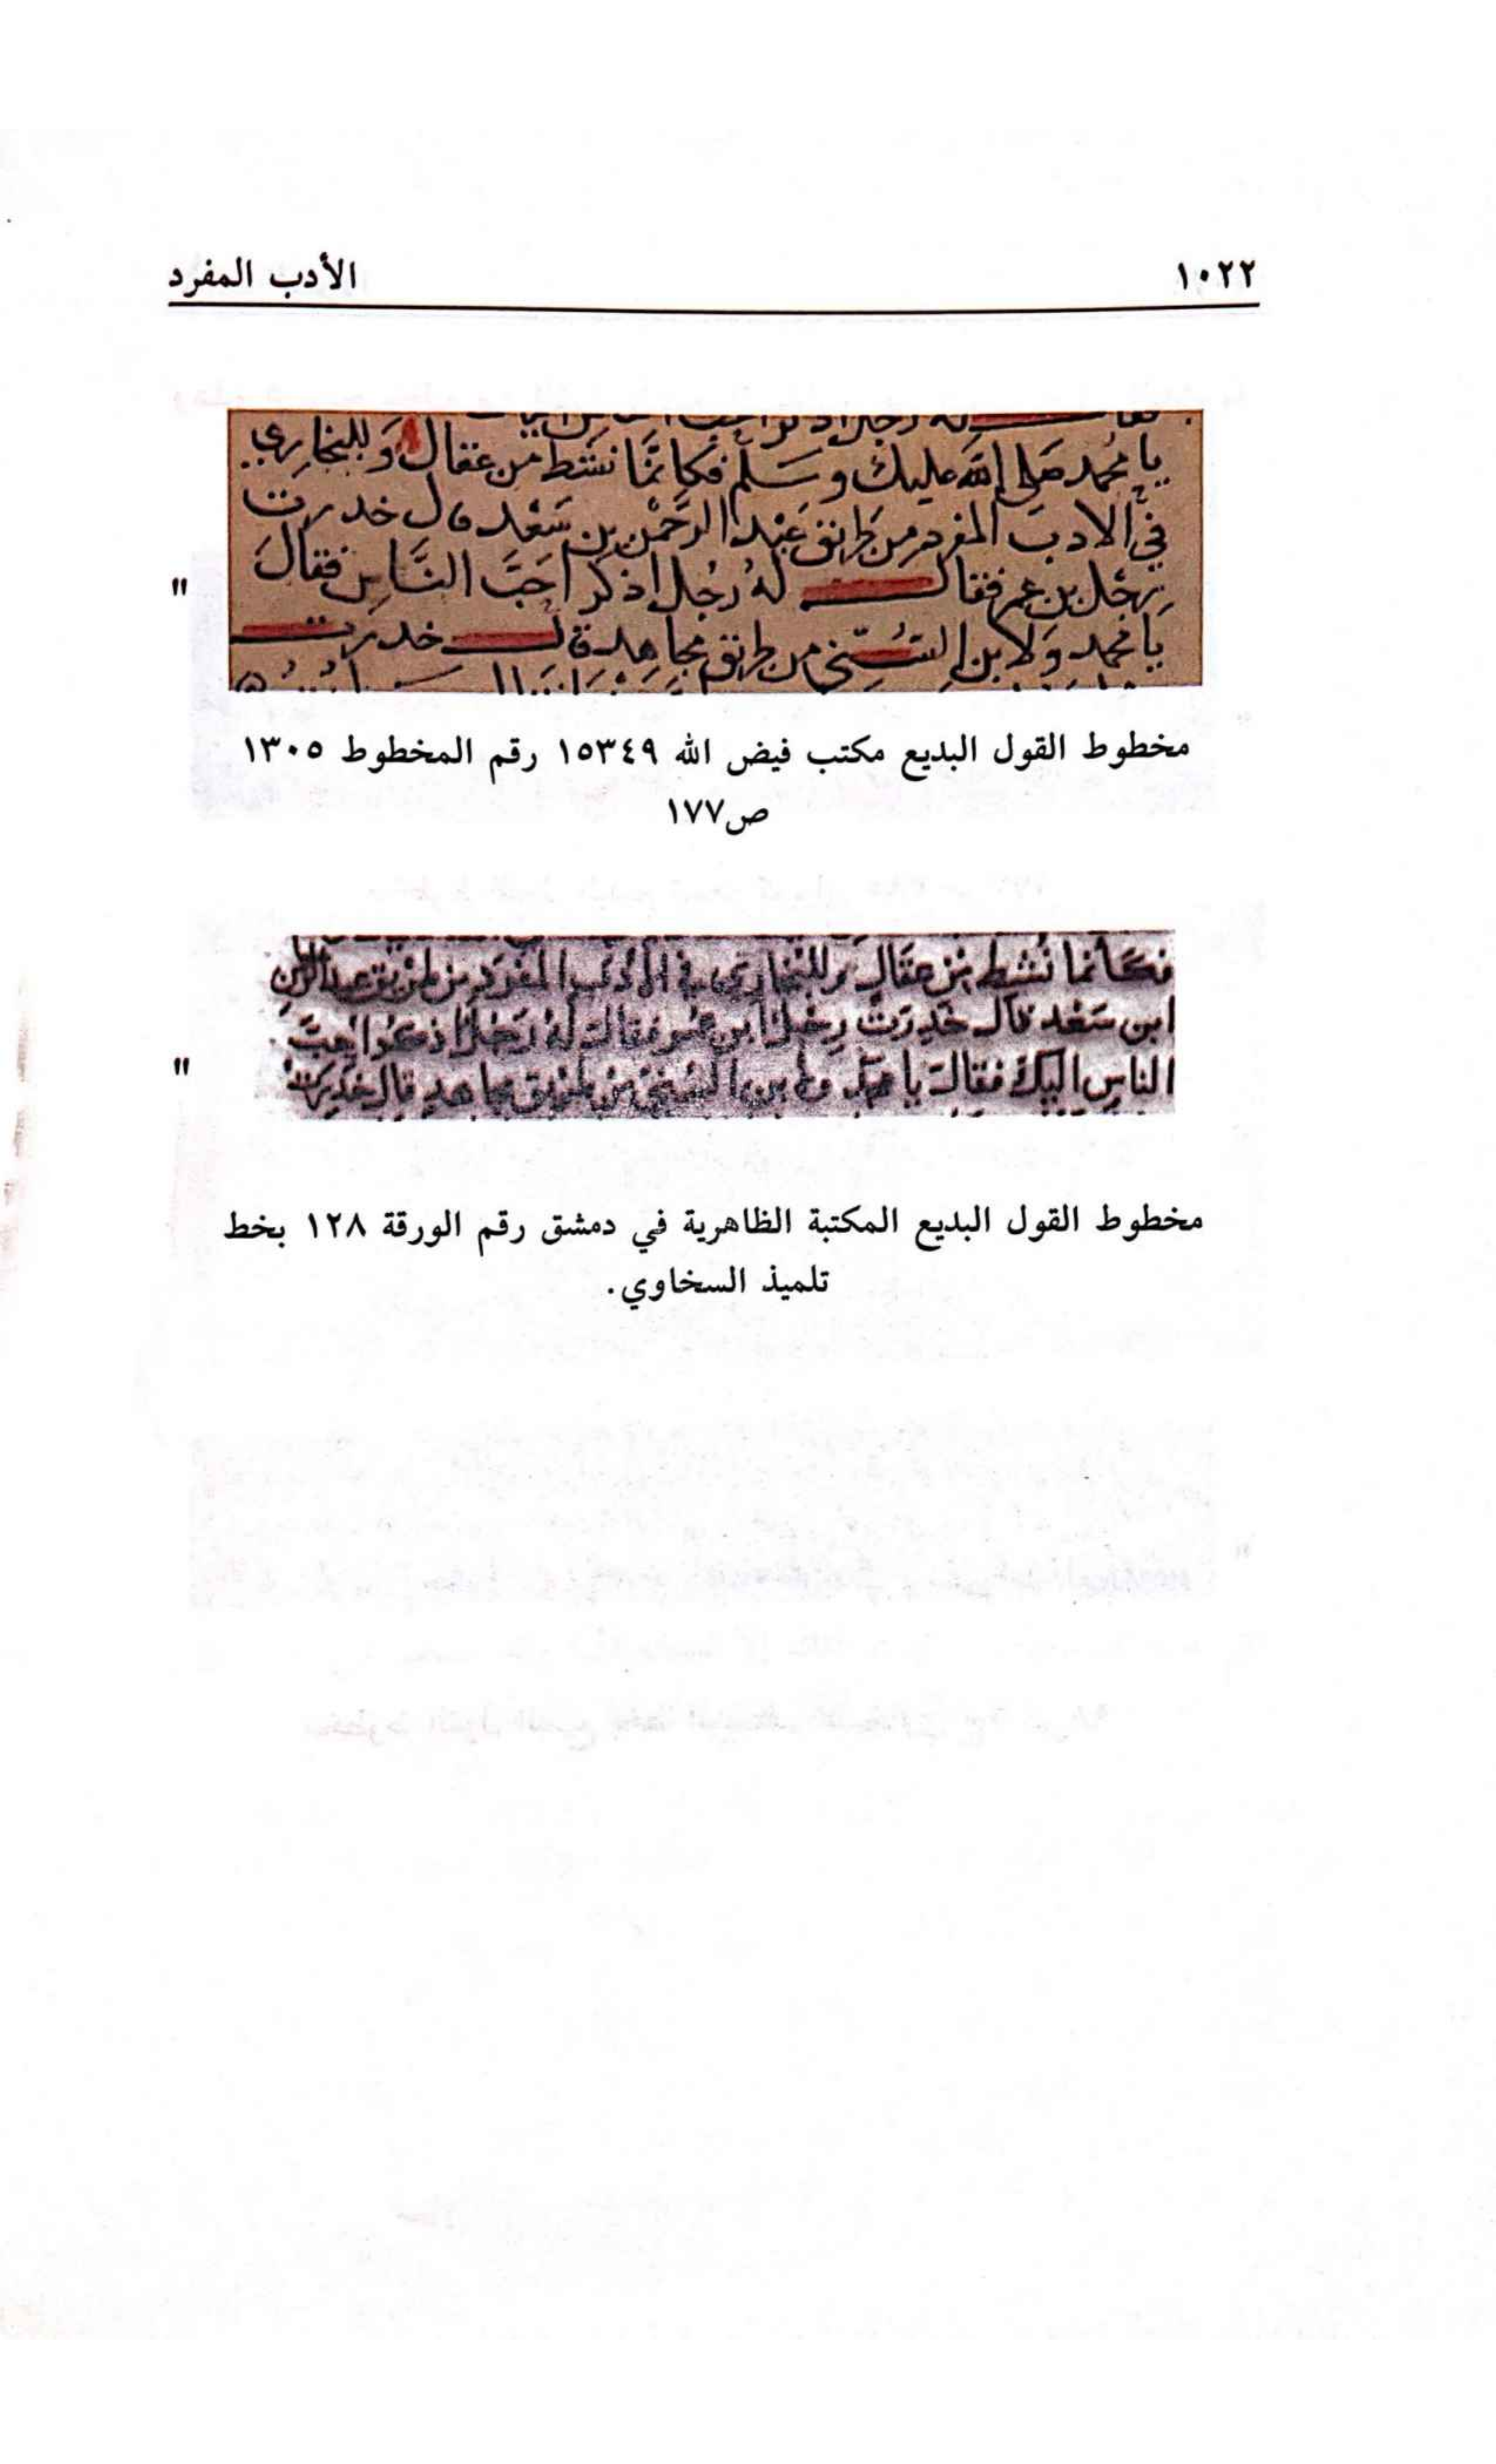 ١٠٢٢
الأدب المفرد
يا محمد صلى الله عليك وسلم فكانما نشط من عقال وللبخاري
في الادب المفرد من طريق عبد الرحمن بن سعد قال خدرت
رجل بن عمر فقال له رجل اذكر احب الناس فقال
يا محمد ولابن السني من طريق مجاهد قال خدرت
"
مخطوط القول البديع مكتب فيض الله ١٥٣٤٩ رقم المخطوط ١٣٠٥
ص١٧٧
فكانما نشط من عقال وللبخاري في الادب المفرد من طريق عبد الرحمن
ابن سعد قال خدرت رجل ابن عمر فقال له رجل اذكر احب
الناس اليك فقال يا محمد ولابن السني من طريق مجاهد قال خدرت
"
مخطوط القول البديع المكتبة الظاهرية في دمشق رقم الورقة ١٢٨ بخط
تلميذ السخاوي.